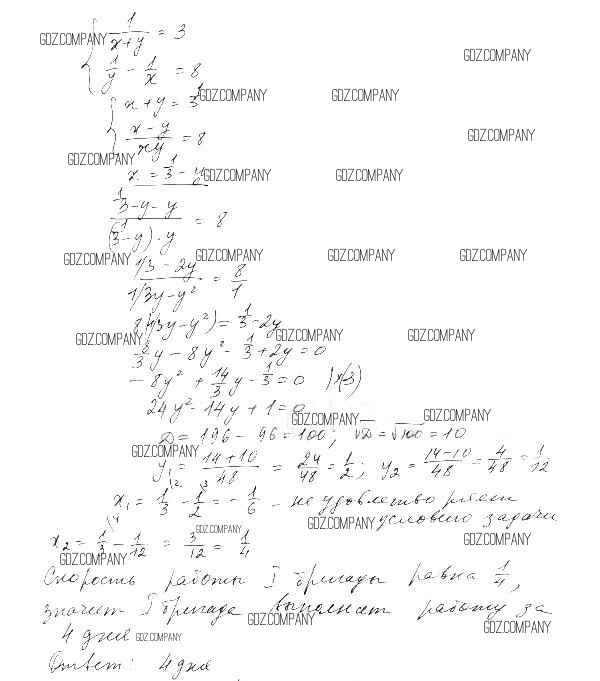 1/(x+y) = 3
GDZ.COMPANY
GDZ.COMPANY
1/y - 1/x = 8
x + y = 1/3
GDZ.COMPANY
GDZ.COMPANY
(x - y)/(xy) = 8
GDZ.COMPANY
GDZ.COMPANY
x = 1/3 - y
GDZ.COMPANY
GDZ.COMPANY
(1/3 - y - y)/((1/3 - y) · y) = 8
GDZ.COMPANY
GDZ.COMPANY
GDZ.COMPANY
GDZ.COMPANY
(1/3 - 2y)/(1/3y - y²) = 8/1
8(1/3y - y²) = 1/3 - 2y
GDZ.COMPANY
GDZ.COMPANY
GDZ.COMPANY
8/3 y - 8y² - 1/3 + 2y = 0
- 8y² + 14/3 y - 1/3 = 0 |×(-3)
24y² - 14y + 1 = 0
GDZ.COMPANY
GDZ.COMPANY
D = 196 - 96 = 100; √D = √100 = 10
GDZ.COMPANY
y₁ = (14 + 10)/48 = 24/48 = 1/2; y₂ = (14 - 10)/48 = 4/48 = 1/12
x₁ = 1/3 - 1/2 = - 1/6 - не удовлетворяет
условию задачи
GDZ.COMPANY
GDZ.COMPANY
x₂ = 1/3 - 1/12 = 3/12 = 1/4
GDZ.COMPANY
GDZ.COMPANY
Скорость работы I бригады равна 1/4,
значит I бригада выполнет работу за
GDZ.COMPANY
GDZ.COMPANY
4 дня
GDZ.COMPANY
Ответ: 4 дня